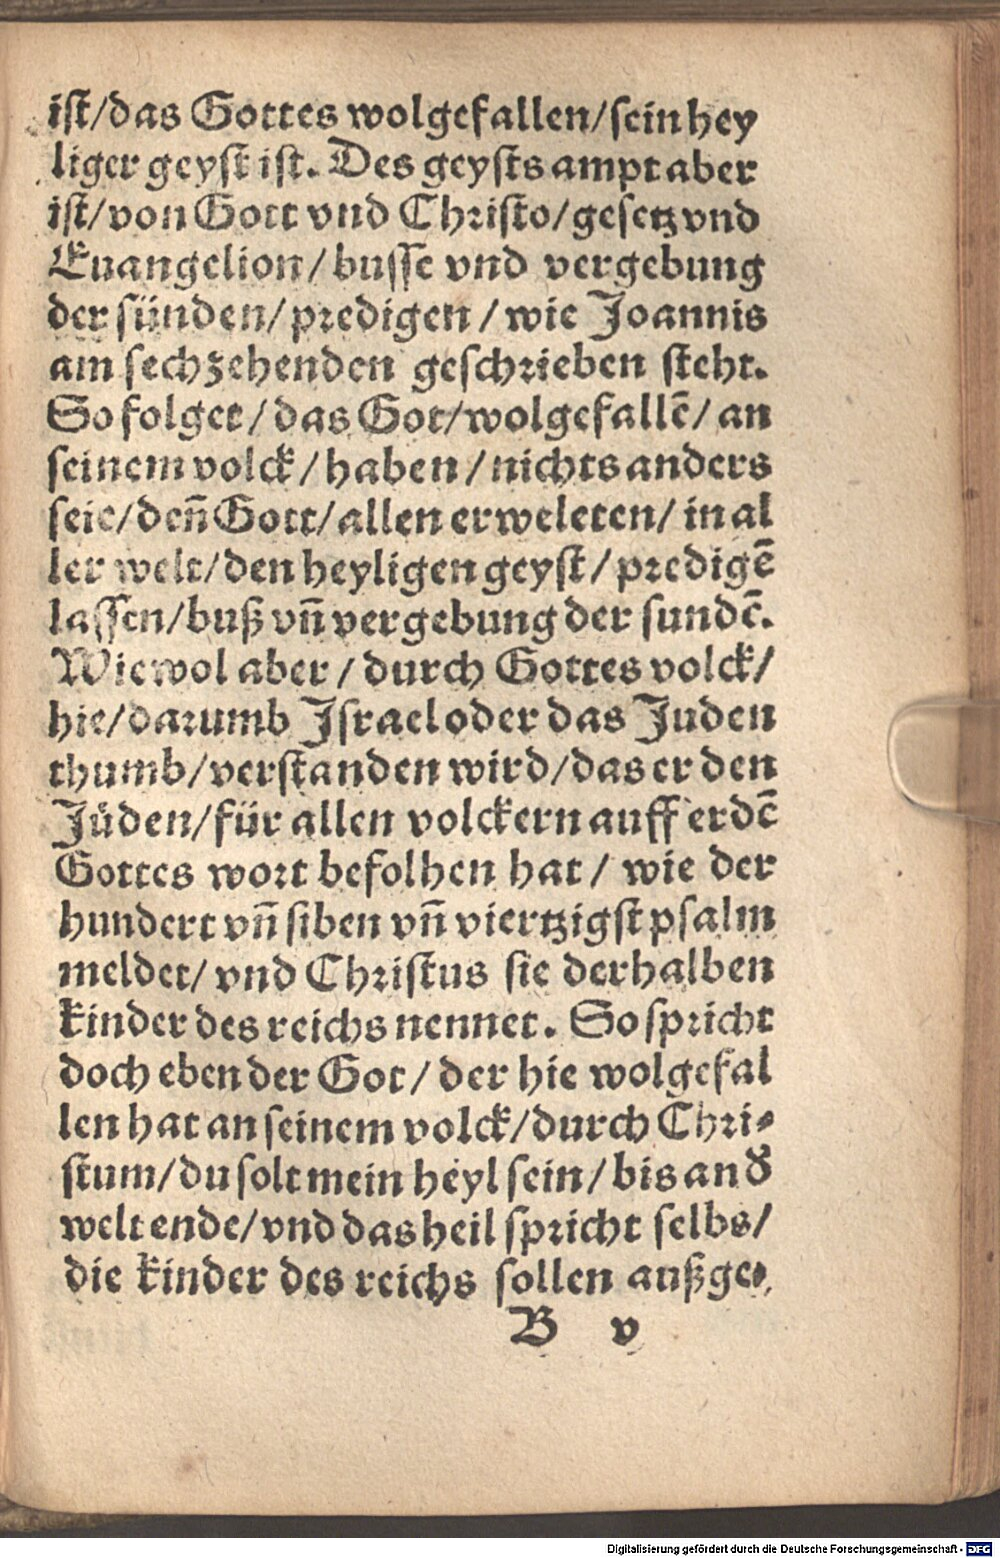 iſt/das Gottes wolgefallen/ſein hey
liger geyſt iſt. Des geyſts ampt aber
iſt/von Gott vnd Chriſto/geſetz vnd
Euangelion/buſſe vnd vergebung
der ſünden/predigen/wie Joannis
am ſechzehenden geſchrieben ſteht.
So folget/das Got/wolgefallē/an
ſeinem volck/haben/nichts anders
ſeie/deñ Gott/allen erweleten/in al
ler welt/den heyligen geyſt/predigē
laſſen/buß vñ vergebung der ſundē.
Wiewol aber/durch Gottes volck/
hie/darumb Iſrael oder das Juden
thumb/verſtanden wird/das er den
Jüden/für allen volckern auff erdē
Gottes wort befolhen hat/wie der
hundert vñ ſiben vñ viertzigſt pſalm
meldet/vnd Chriſtus ſie derhalben
kinder des reichs nennet. So ſpricht
doch eben der Got/der hie wolgefal
len hat an ſeinem volck/durch Chri⸗
ſtum/du ſolt mein heyl ſein/bis an d̕
welt ende/vnd das heil ſpricht ſelbs/
die kinder des reichs ſollen außge⸗
B v
Digitalisierung gefördert durch die Deutsche Forschungsgemeinschaft - DFG